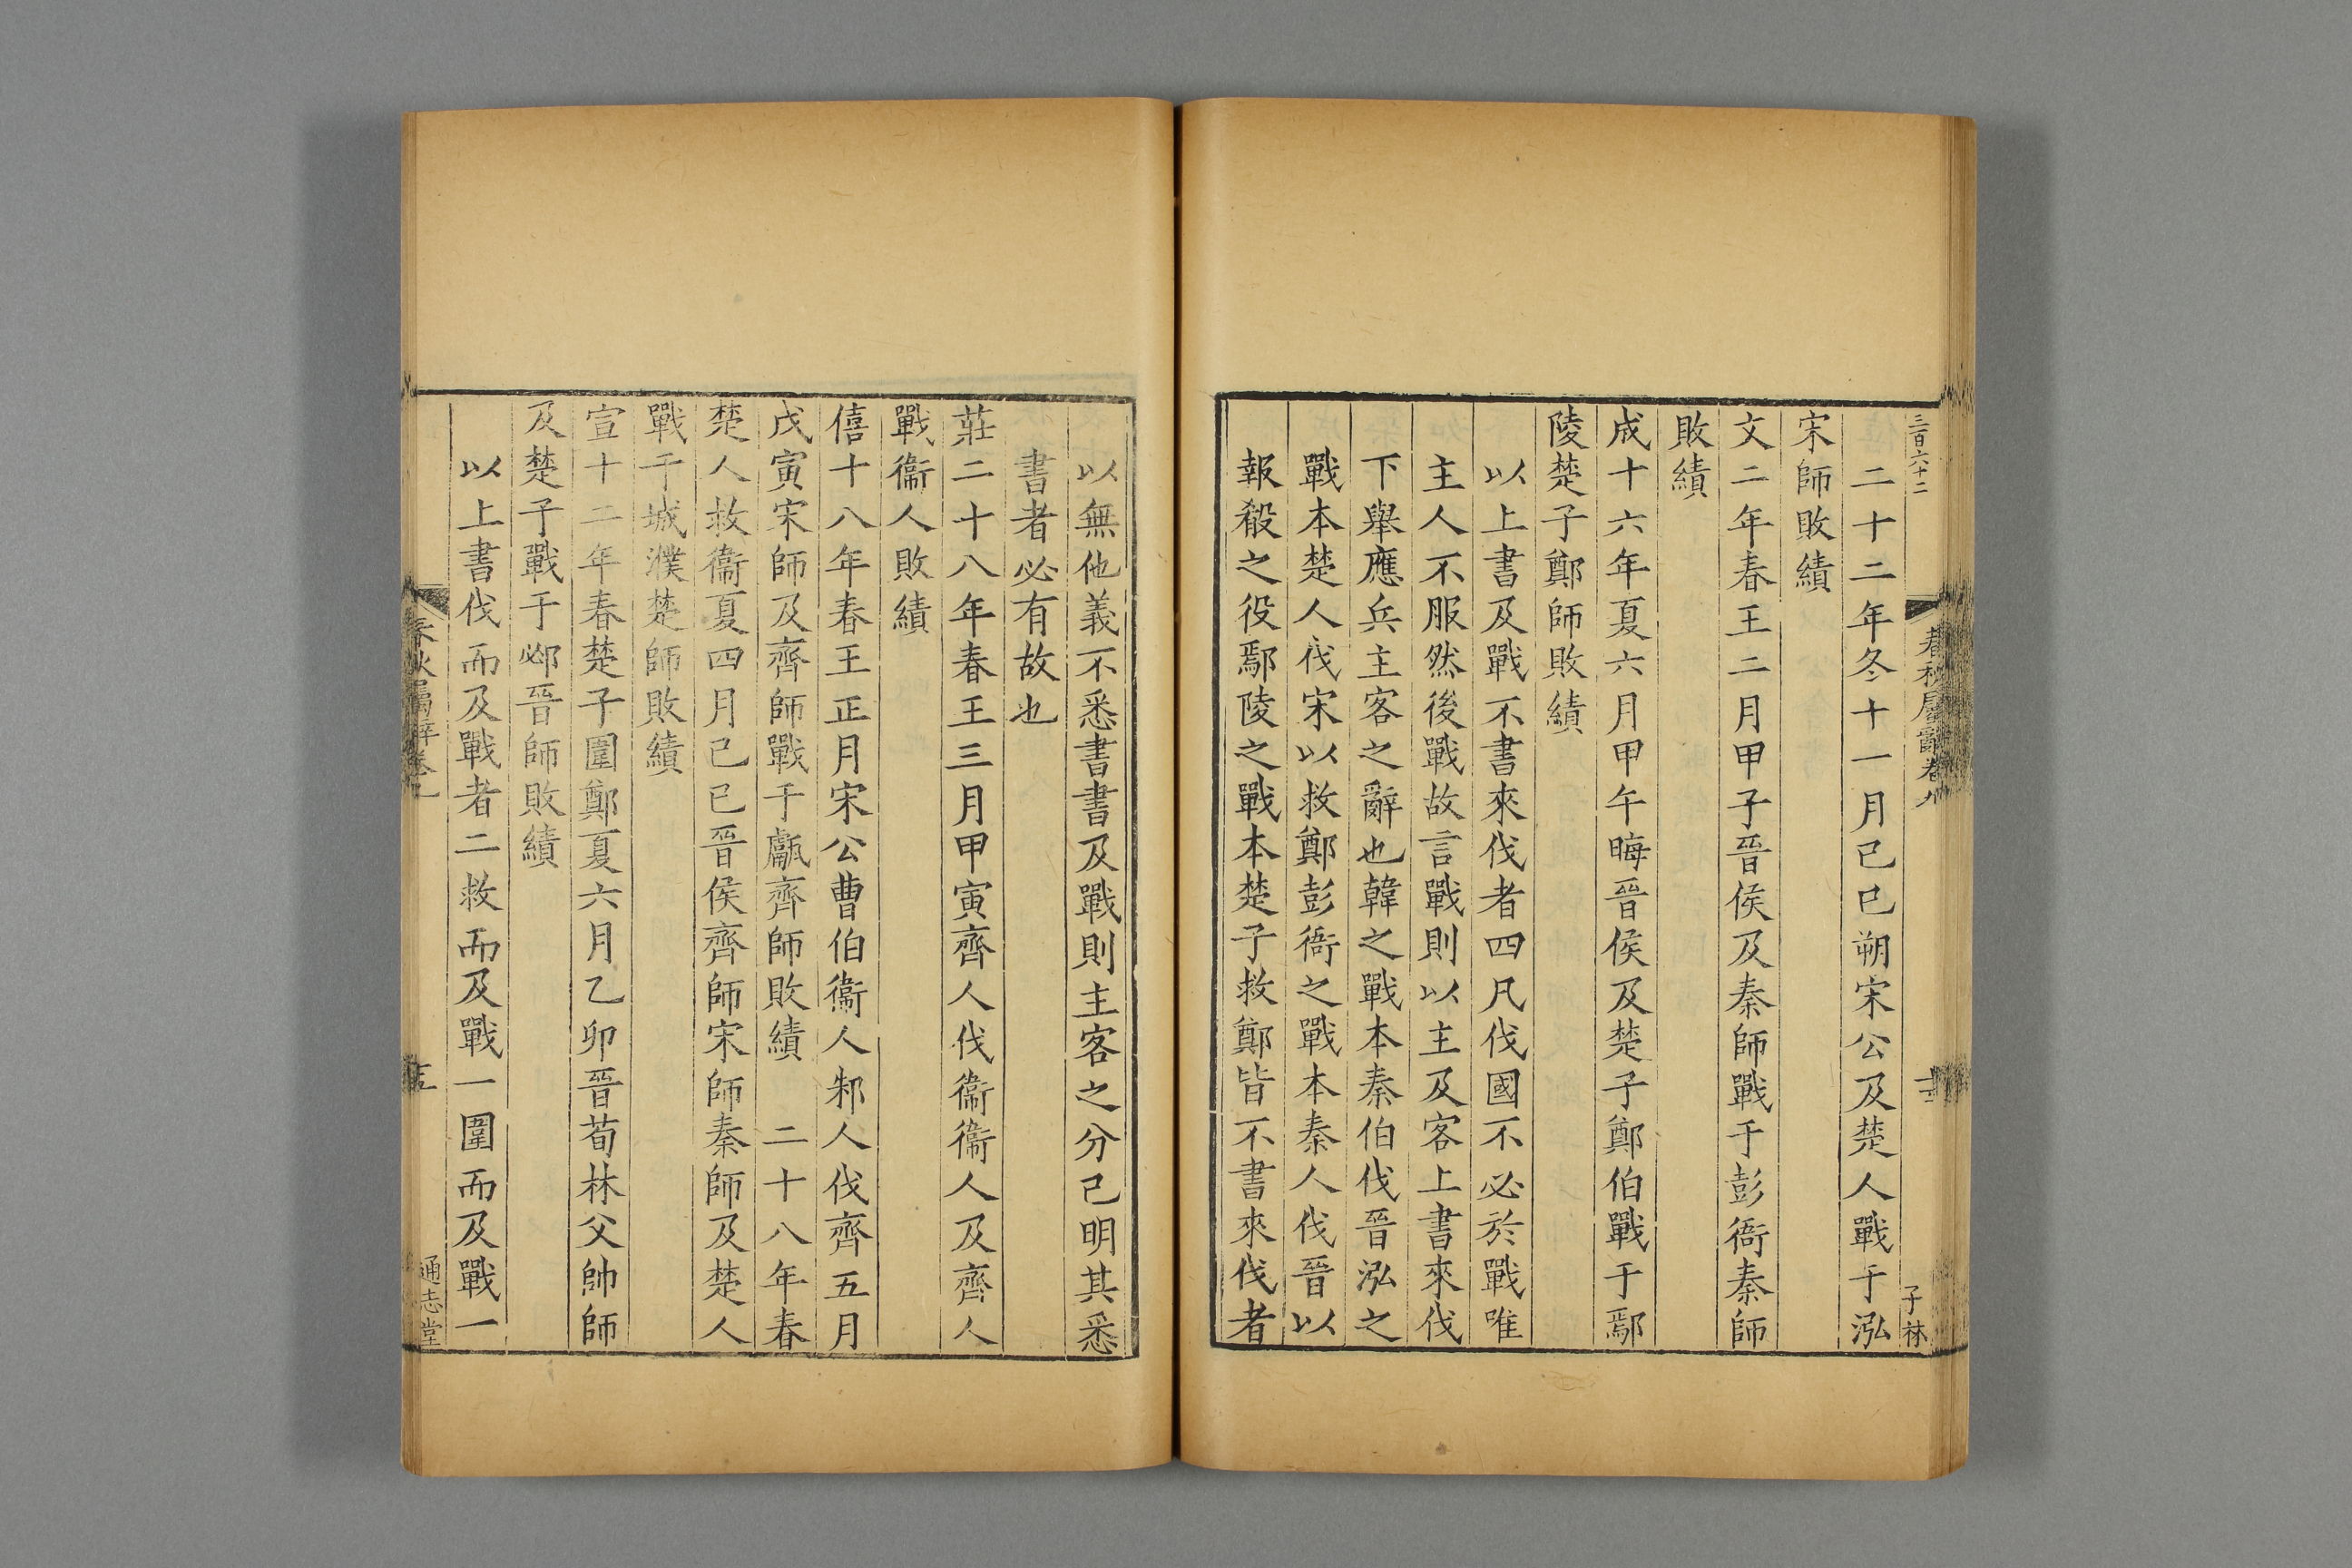 三百六十二
春秋屬辭卷九
子林
二十二年冬十一月己巳朔宋公及楚人戰于泓
宋師敗績
文二年春王二月甲子晉侯及秦師戰于彭衙秦師
敗績
成十六年夏六月甲午晦晉侯及楚子鄭伯戰于鄢
陵楚子鄭師敗績
以上書及戰不書來伐者四凡伐國不必於戰唯
主人不服然後戰故言戰則以主及客上書來伐
下舉應兵主客之辭也韓之戰本秦伯伐晉泓之
戰本楚人伐宋以救鄭彭衙之戰本秦人伐晉以
報殽之役鄢陵之戰本楚子救鄭皆不書來伐者
以無他義不悉書書及戰則主客之分已明其悉
書者必有故也
莊二十八年春王三月甲寅齊人伐衞衞人及齊人
戰衞人敗績
僖十八年春王正月宋公曹伯衞人邾人伐齊五月
戊寅宋師及齊師戰于甗齊師敗績 二十八年春
楚人救衞夏四月己巳晉侯齊師宋師秦師及楚人
戰于城濮楚師敗績
宣十二年春楚子圍鄭夏六月乙卯晉荀林父帥師
及楚子戰于邲晉師敗績
以上書伐而及戰者二救而及戰一圍而及戰一
春秋屬辭卷
通志堂